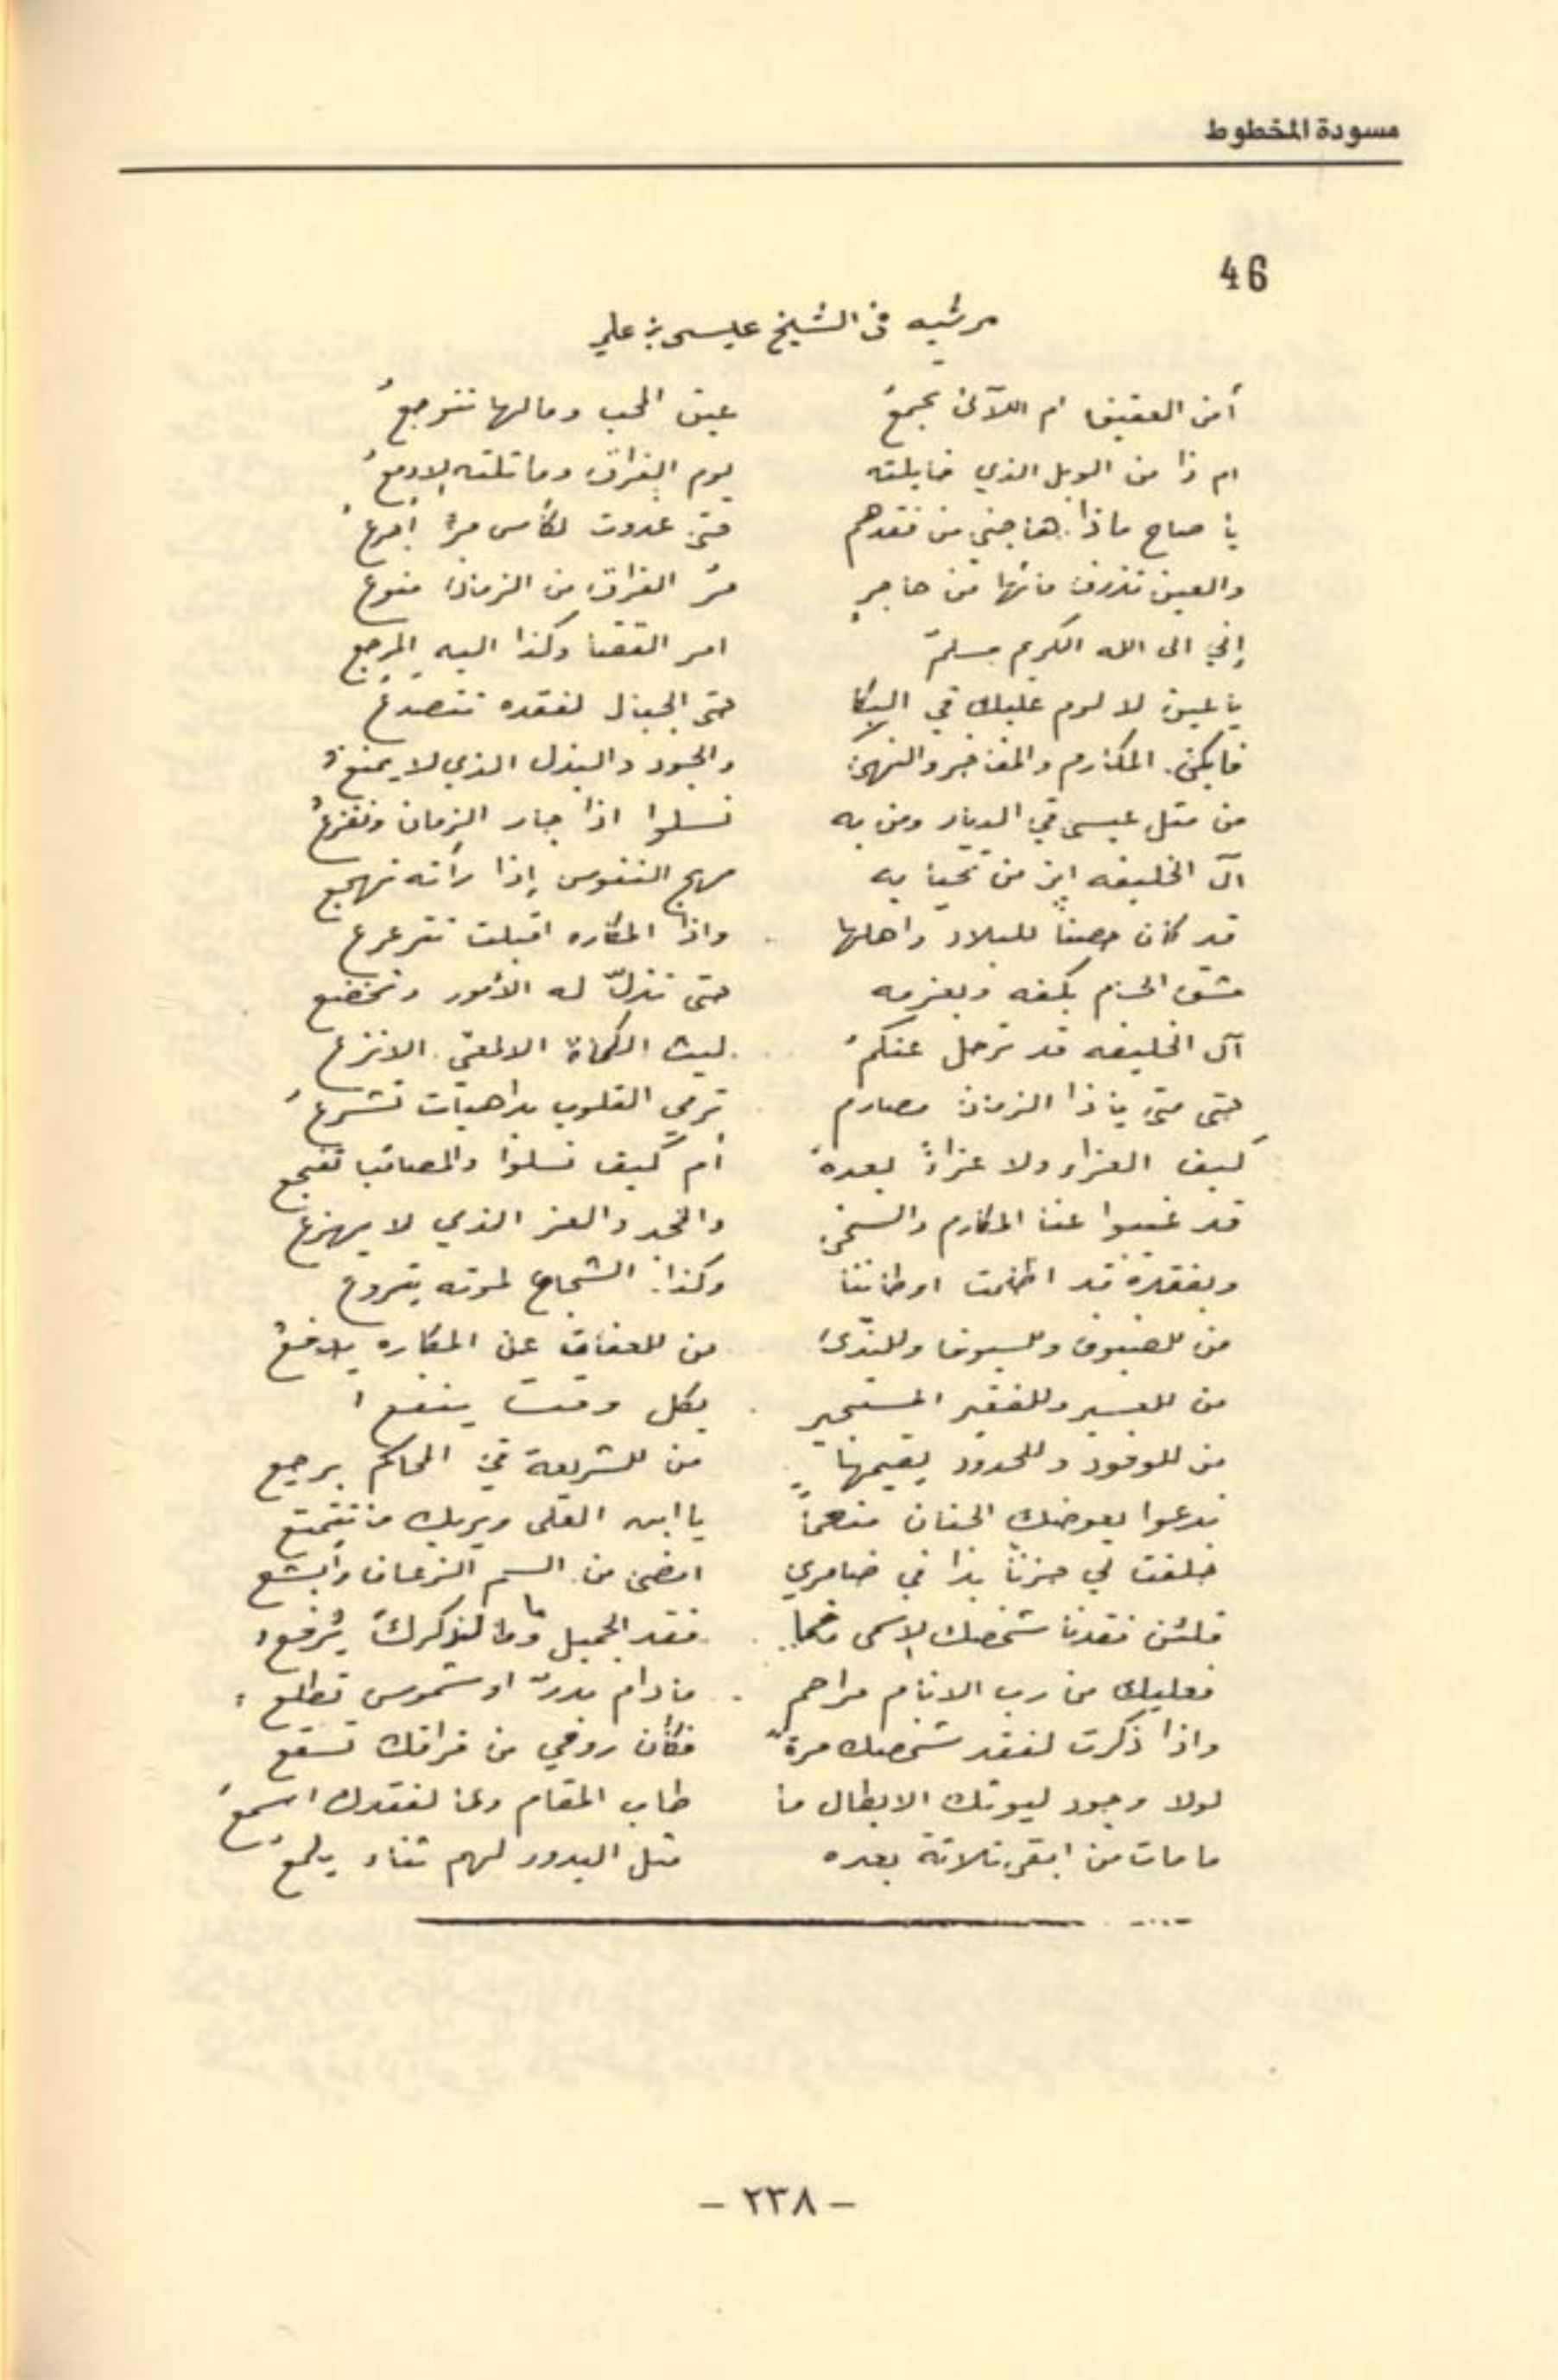 مسودة المخطوط
46
مرثيه في الشيخ عيسى بن علي
أمن العقيق ام اللآلئ تجمعُ عين المحب ومالها تترجعُ
ام ذا من الوبل الذي خايلته يوم الفراق وما تلته الادمعُ
يا صاح ماذا هاجني من فقدهم حتى غدوت لكأس مرٍّ أجرعُ
والعين تذرف مائها من هاجرٍ مرّ الفراق من الزمان منوع
إني الى الله الكريم مسلمٌ امر القضا وكذا اليه المرجع
يا عين لا لوم عليك في البكا حتى الجبال لفقده تتصدعُ
فابكي المكارم والمفاخر والنهى والجود والبذل الذي لا يمنعُ
من مثل عيسى في الديار ومن به نسلوا اذا جار الزمان ونفزعُ
آل الخليفه اين من تحيا به مهج النفوس إذا رأته تهجع
قد كان حصناً للبلاد واهلها واذا المكاره اقبلت تترعرع
مشق الحزم بكفه وبعزمه حتى تذلّ له الأمور وتخضع
آل الخليفه قد ترحل عنكمُ ليث الكماة الالمعي الانزع
حتى متى يا ذا الزمان مصارم ترمي القلوب بداهيات تشرعُ
كيف العزاء ولا عزاءً بعده أم كيف نسلوا والمصائب تفجع
قد غيبوا عنا المكارم والسخى والمجد والعز الذي لا يهزع
وبفقده قد اظلمت اوطاننا وكذا الشجاع لموته يتروع
من للضيوف وللسيوف وللندى من للعفات عن المكاره يدفعُ
من للعسير وللفقير المستجير بكل وقت ينفع
من للوفود وللحدود يقيمها من للشريعة في المحاكم يرجع
ندعوا يعوضك الجنان منعماً يا ابن العلى ويريك ما تتمتع
خلفت لي حزناً بدا في ضامري امضى من السم الزعاف وأبشع
فلئن فقدنا شخصك الاسمى فقد الجميل وما لذكركَ يُرفع
فعليك من رب الانام مراحم ما دام بدرٌ او شموس تطلع
واذا ذكرت لفقد شخصك مرةً فكأن روحي من فراقك تسقع
لولا وجود ليوثك الابطال ما طاب المقام ولا لفقدك اسمعُ
ما مات من ابقى ثلاثة بعده مثل البدور لهم ثناء يلمعُ
- ٢٣٨ -